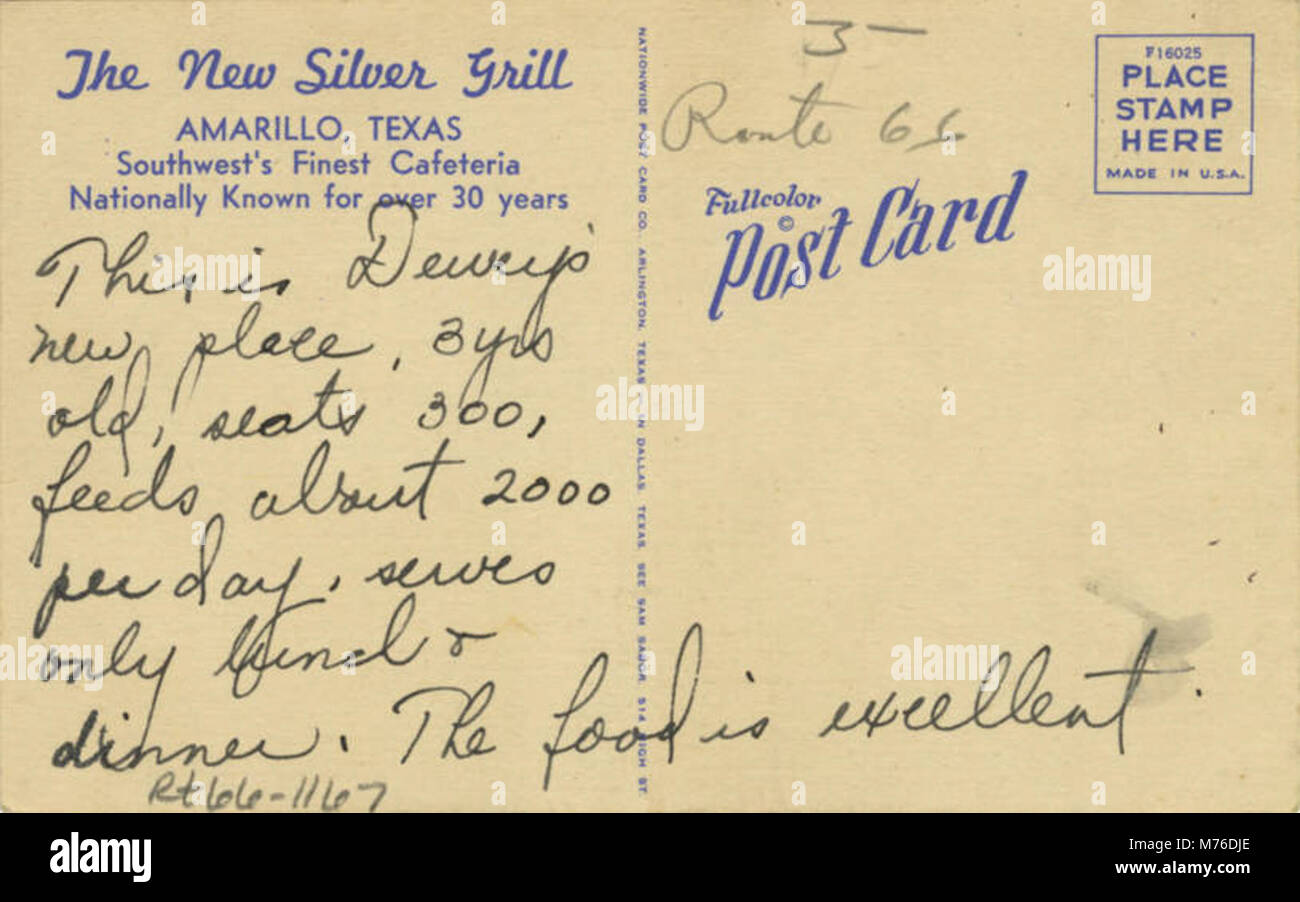 The New Silver Grill
AMARILLO, TEXAS
Southwest's Finest Cafeteria
Nationally Known for over 30 years
This is Dewey's
new place, 3 yrs
old, seats 300,
feeds about 2000
per day, serves
only &
dinner. The food is excellent.
Rt66-1167
NATIONWIDE POST CARD CO. ARLINGTON, TEXAS IN DALLAS, TEXAS, SEE SAM 514 HIGH ST.
3 —
Route 66
Fullcolor
©
Post Card
F16025
PLACE
STAMP
HERE
MADE IN U.S.A.
alamy
alamy
Image ID: M76DJE
www.alamy.com